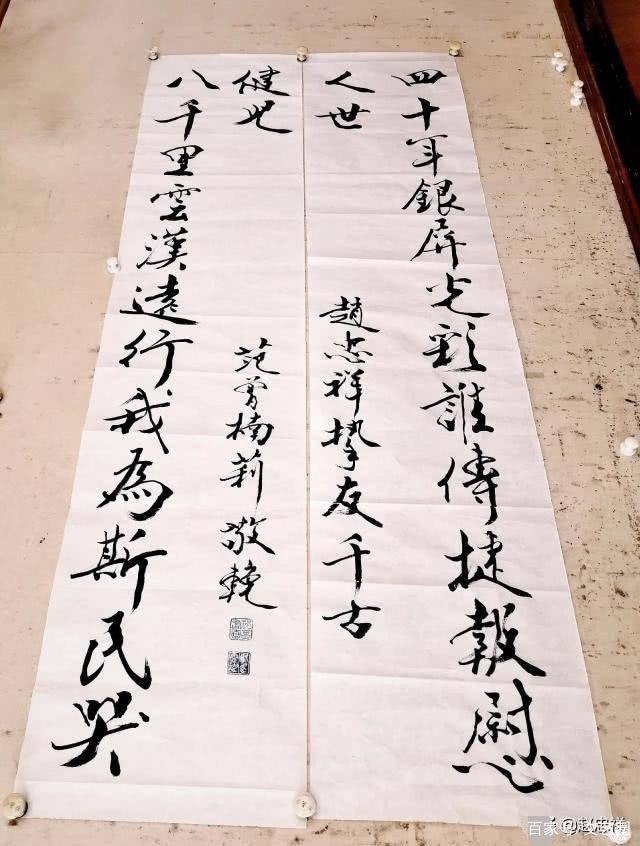 四十年銀屏光彩誰傳捷報慰
人世
趙忠祥摯友千古
八千里雲漢遠行我為斯民哭
健兒
范曾楠莉敬輓
@赵忠祥
百家号